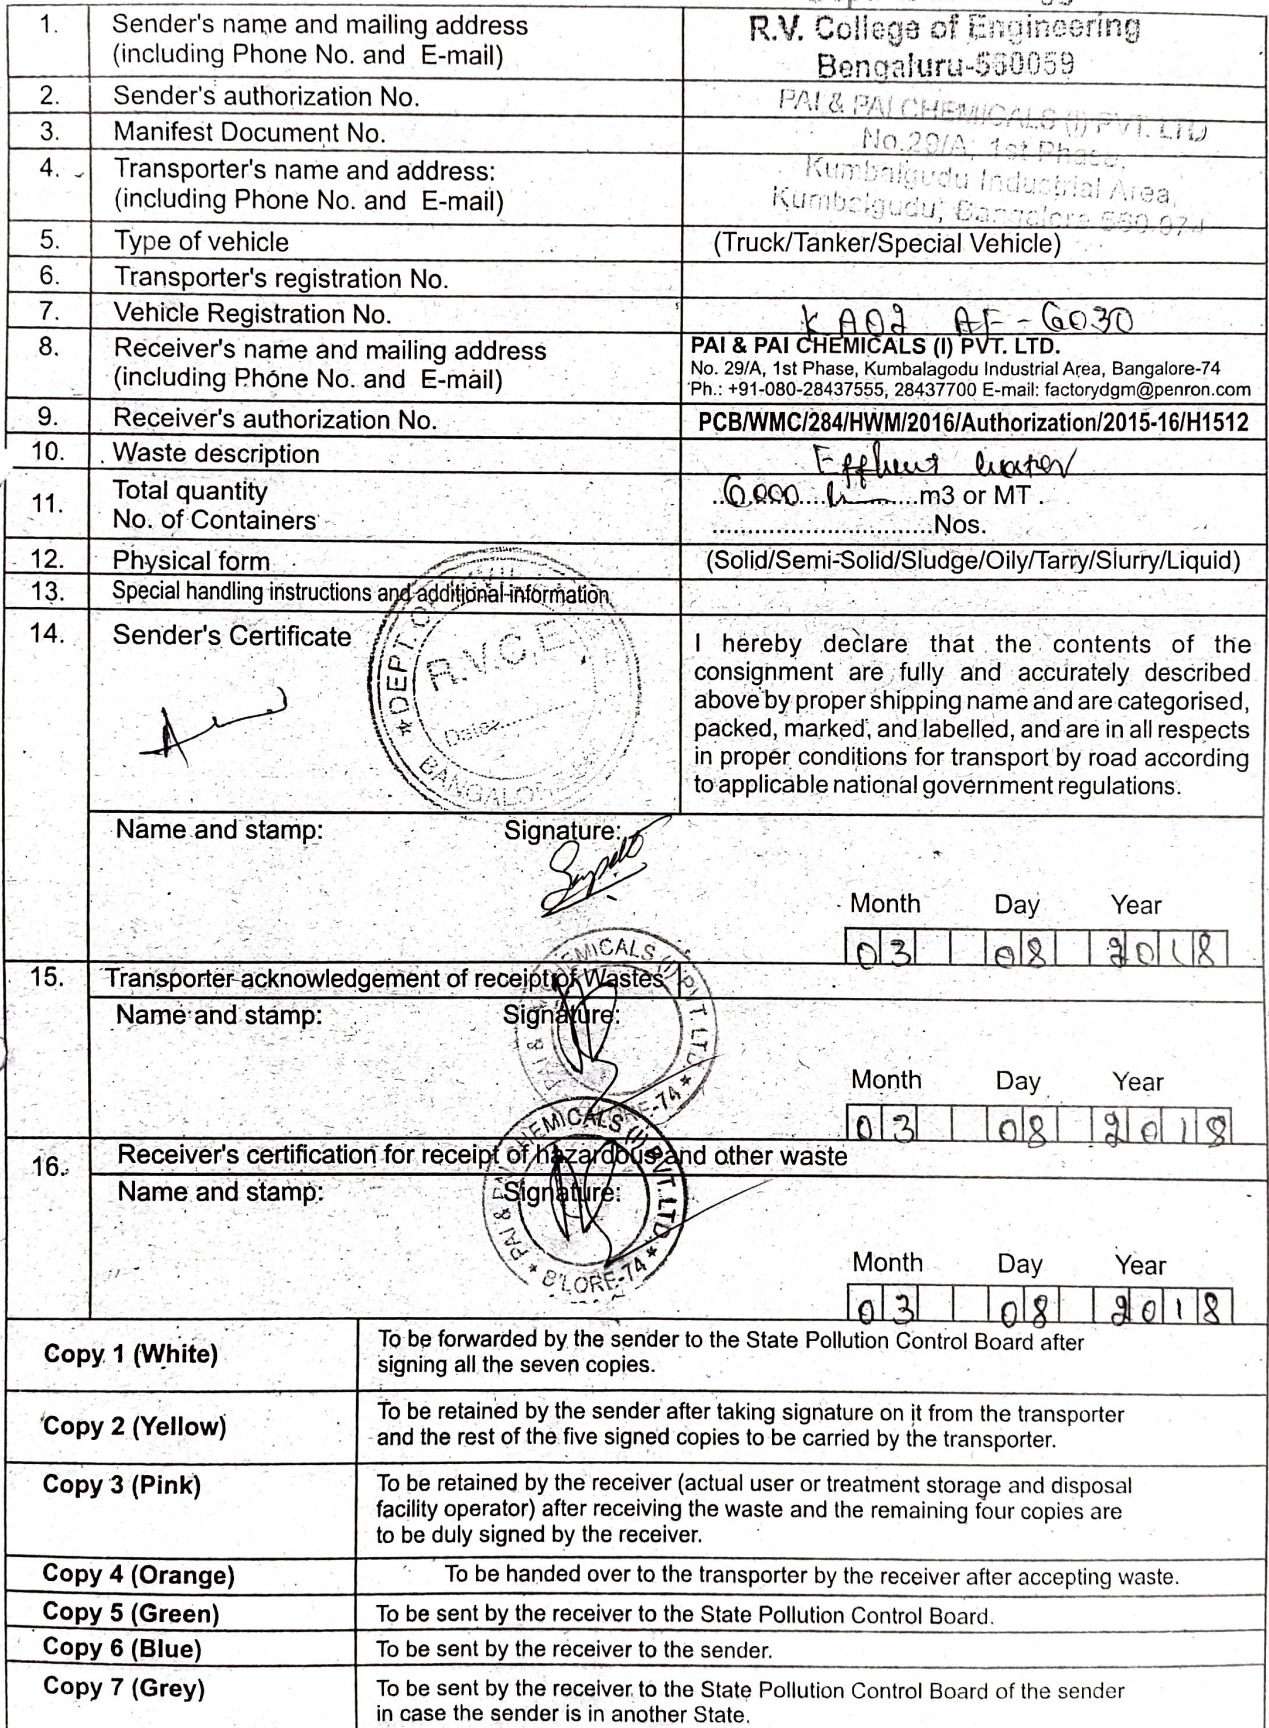 1. Sender's name and mailing address
(including Phone No. and E-mail)
R.V. College of Engineering
Bengaluru-560059
2. Sender's authorization No.
3. Manifest Document No.
4. Transporter's name and address:
(including Phone No. and E-mail)
PAI & PAI CHEMICALS (I) PVT. LTD
No.29/A, 1st Phase,
Kumbalgudu Industrial Area,
Kumbalgudu, Bangalore 560 074
5. Type of vehicle (Truck/Tanker/Special Vehicle)
6. Transporter's registration No.
7. Vehicle Registration No. KA02 AF-6030
8. Receiver's name and mailing address
(including Phone No. and E-mail)
PAI & PAI CHEMICALS (I) PVT. LTD.
No. 29/A, 1st Phase, Kumbalagodu Industrial Area, Bangalore-74
Ph.: +91-080-28437555, 28437700 E-mail: factorydgm@penron.com
9. Receiver's authorization No. PCB/WMC/284/HWM/2016/Authorization/2015-16/H1512
10. Waste description Effluent water
11. Total quantity
No. of Containers
6000 m3 or MT.
Nos.
12. Physical form (Solid/Semi-Solid/Sludge/Oily/Tarry/Slurry/Liquid)
13. Special handling instructions and additional information
14. Sender's Certificate
DEPT. O
R.V.C.E.
Date
BANGALORE
I hereby declare that the contents of the
consignment are fully and accurately described
above by proper shipping name and are categorised,
packed, marked, and labelled, and are in all respects
in proper conditions for transport by road according
to applicable national government regulations.
Name and stamp: Signature:
Month Day Year
03 08 2018
15. Transporter acknowledgement of receipt of Wastes
Name and stamp: Signature:
PAI & CHEMICALS (I) PVT. LTD. * E-74 *
Month Day Year
03 08 2018
16. Receiver's certification for receipt of hazardous and other waste
Name and stamp: Signature:
PAI & PAI CHEMICALS (I) PVT. LTD. * B'LORE-74 *
Month Day Year
03 08 2018
Copy 1 (White) To be forwarded by the sender to the State Pollution Control Board after
signing all the seven copies.
Copy 2 (Yellow) To be retained by the sender after taking signature on it from the transporter
and the rest of the five signed copies to be carried by the transporter.
Copy 3 (Pink) To be retained by the receiver (actual user or treatment storage and disposal
facility operator) after receiving the waste and the remaining four copies are
to be duly signed by the receiver.
Copy 4 (Orange) To be handed over to the transporter by the receiver after accepting waste.
Copy 5 (Green) To be sent by the receiver to the State Pollution Control Board.
Copy 6 (Blue) To be sent by the receiver to the sender.
Copy 7 (Grey) To be sent by the receiver to the State Pollution Control Board of the sender
in case the sender is in another State.